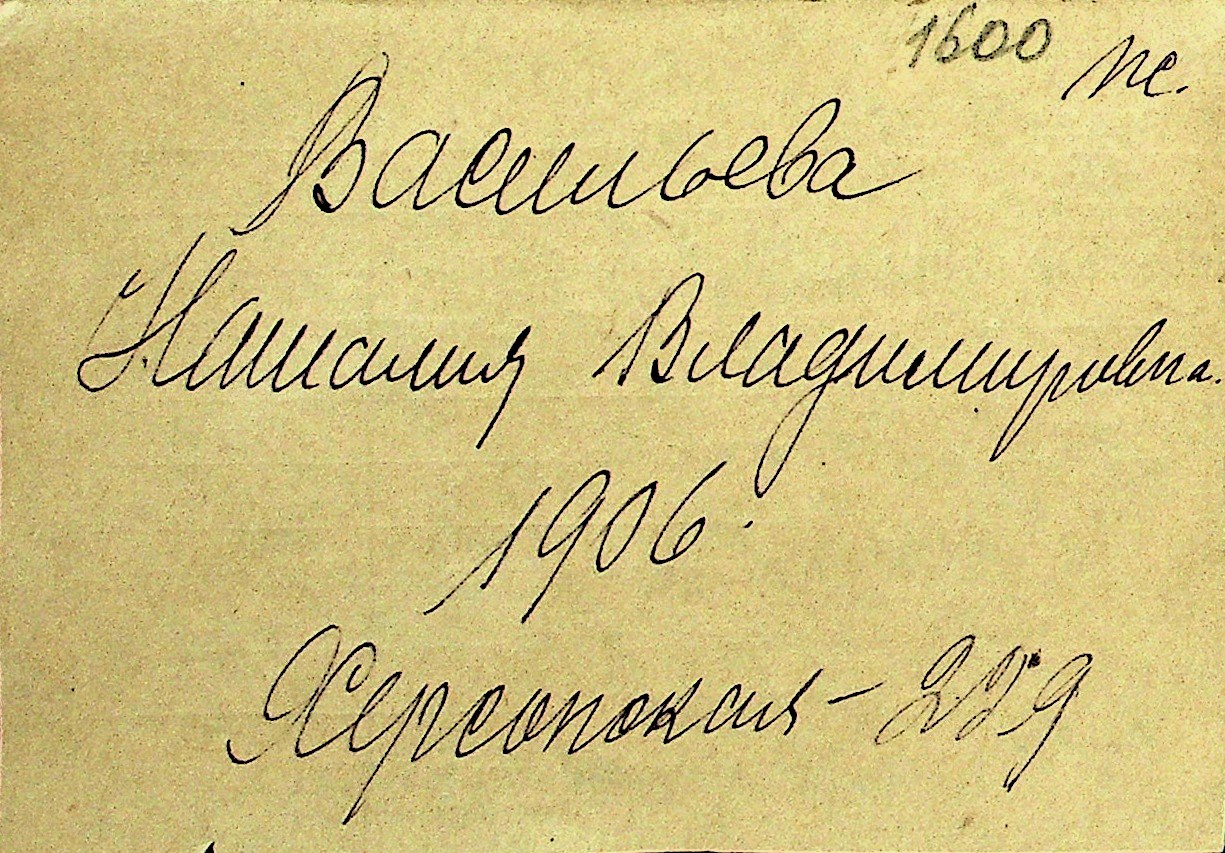 1600 пе.
Васильева
Наталия Владимировна.
1906.
Херсонская - 229